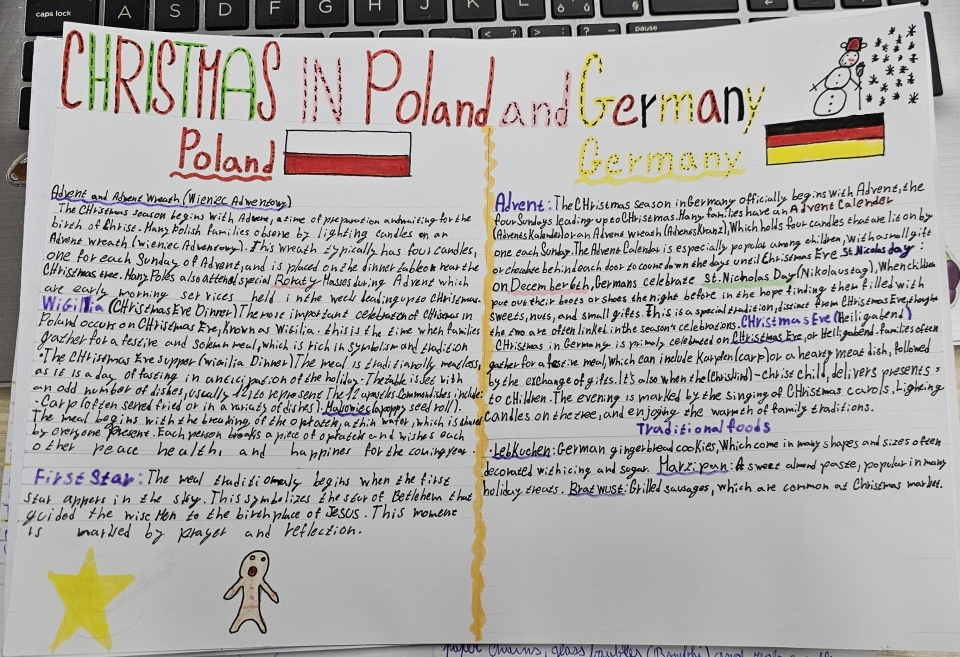 caps lock
A S D F G H J K L
pause
CHRISTMAS IN Poland and Germany
Poland
Advent and Advent Wreath (Wieniec Adwentowy)
The Christmas season begins with Advent, a time of preparation and waiting for the
birth of Christ. Many Polish families observe by lighting candles on an
Advent wreath (wieniec Adwentowy). This wreath typically has four candles,
one for each Sunday of Advent, and is placed on the dinner table or near the
Christmas tree. Many Poles also attend special Roraty Masses during Advent which
are early morning services held in the week leading up to Christmas.
Wigilia (Christmas Eve Dinner) The most important celebration of Christmas in
Poland occurs on Christmas Eve, known as Wigilia. this is the time when families
gather for a festive and solemn meal, which is rich in symbolism and tradition
·The Christmas Eve supper (wigilia Dinner) The meal is traditionally meatless,
as it is a day of fasting in anticipation of the holiday. The table is set with
an odd number of dishes, usually 12, to represent The 12 apostles. Common dishes include:
·Carp (often served fried or in a variety of dishes). Makowiec (a poppy seed roll).
The meal begins with the breaking of the opłatek, a thin wafer, which is shared
by everyone present. Each person breaks a piece of opłatek and wishes each
other peace health and happines for the coming year.
First Star: The meal traditionaly begins when the first
star appers in the sky. This symbolizes the star of Betlehem that
guided the wise Men to the birthplace of Jesus. This moment
is marked by prayer and reflection.
Germany
Advent: The Christmas Season in Germany officially begins with Advent, the
four Sundays leading up to Christmas. Many families have an Advent Calender
(Advents Kalender) or an Advent Wreath (AdvensKranz), Which holds four candles that are lit on by
one each Sunday. The Advent Calendar is especially popular among children, with a small gift
or chocolate behind each door to count down the days until Christmas Eve St. Nicolas day:
on December 6th, Germans celebrate st. Nicholas Day (Nikolaustag), When children
put out their boots or shoes the night before in the hope finding them filled with
sweets, nuts, and small gifts. This is a special tradition, distinct from Christmas Eve, though
the two are often linked in the season's celebrations. Christmas Eve (Heiligabend)
Christmas in Germany is primaly celebrated on Christmas Eve, or Heiligabend. families often
gather for a festive meal, which can include Karpfen (carp) or a hearty meat dish, followed
by the exchange of gifts. It's also when the (Christkind) - Christ Child, delivers presents
to children. The evening is marked by the singing of Christmas carols, lighting
candles on the tree, and enjoying the warmth of family traditions.
Traditional foods
·LebKuchen: German gingerbread cookies, Which come in many shapes and sizes often
decorated with icing and sugar. Marzipan: A sweet almond paste, popular in many
holiday treats. Bratwust: Grilled sausages, which are common at Christmas market.
paper chains, glass baubles (Bombki) and